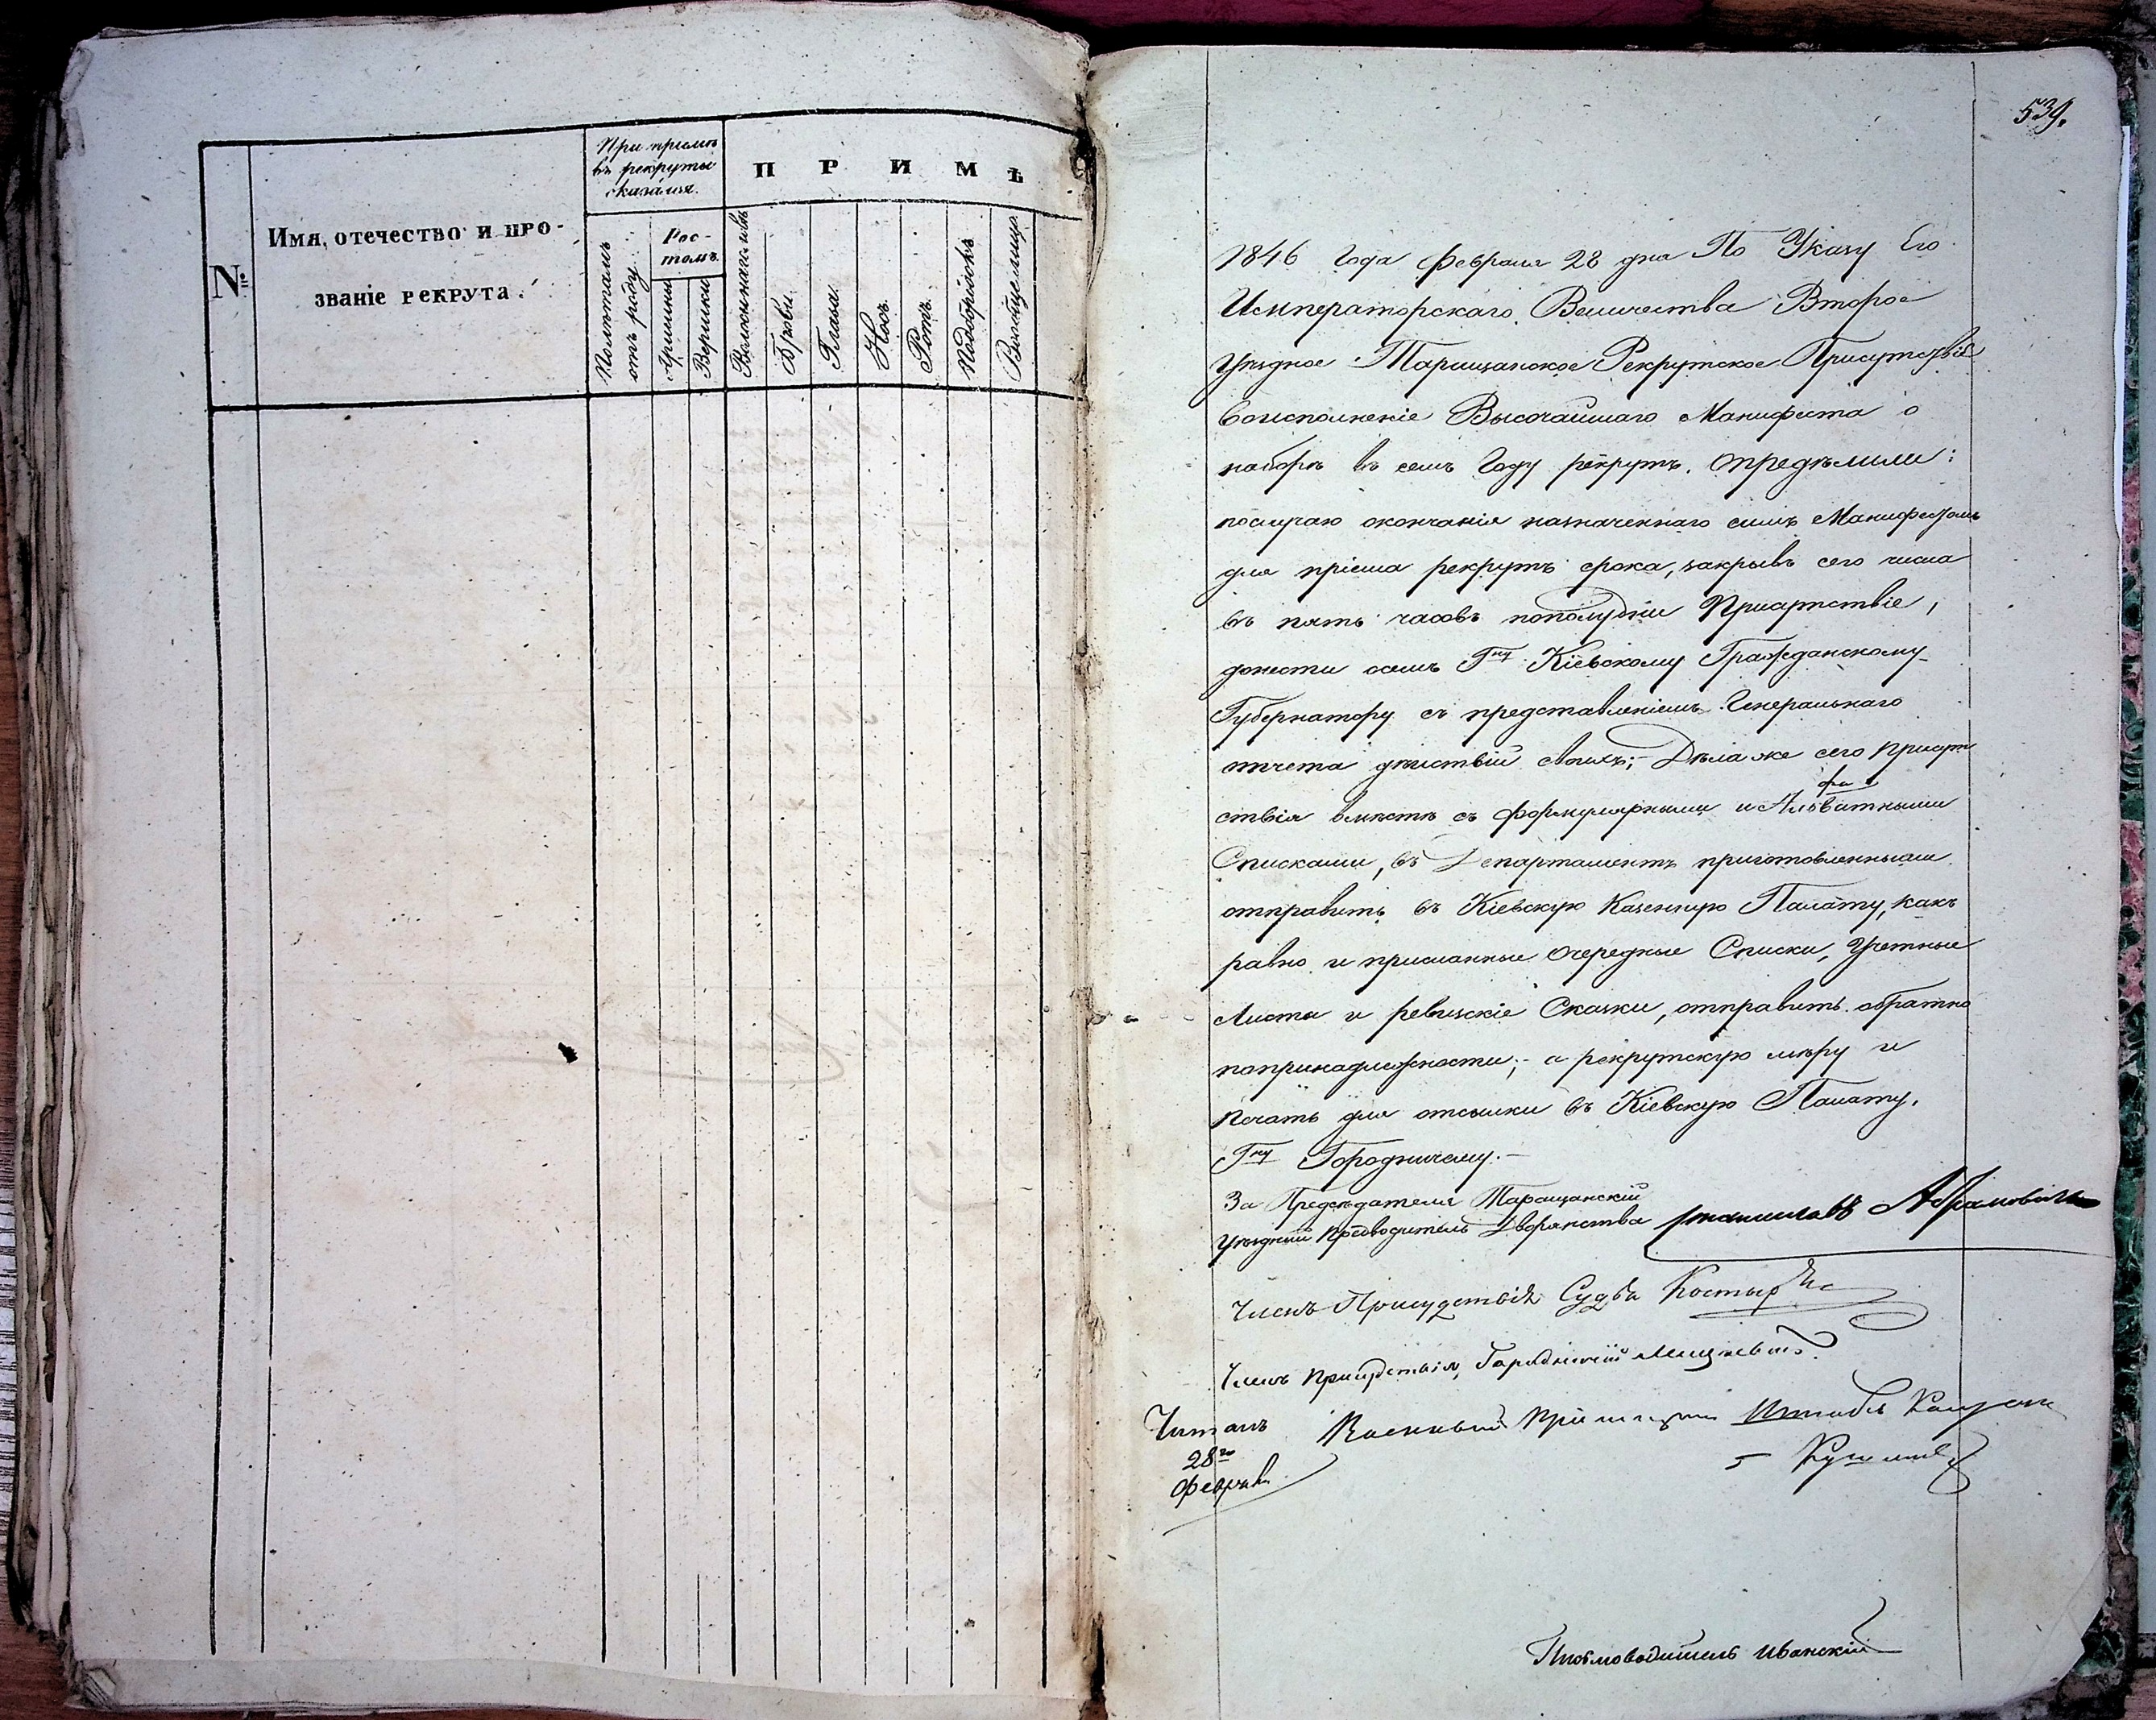 №
Имя, отечество и про-
званіе рекрута.
При пріемѣ
въ рекруты
оказался.
ПРИМѢ
Полѣтамъ
отъ роду
Рос-
томъ.
Аршины
Вершки
Волосы на головѣ
Брови
Глаза
Носъ
Ротъ
Подбородокъ
Вообще лицо
539.
1846 Года Февраля 28 дня По Указу Его
Императорскаго Величества Второе
Уѣздное Таращанское Рекрутское Присутствіе
воисполненіе Высочайшаго Манифеста о
наборѣ въ семъ Году рекрутъ. Опредѣлили:
послучаю окончанія назначеннаго симъ Манифестомъ
для пріема рекрутъ срока, закрывъ сего числа
въ пять часовъ пополудни Присутствіе,
донести осемъ Гну Кіевскому Гражданскому
Губернатору съ представленіемъ Генеральнаго
отчета дѣйствій своихъ;- Дѣла же сего присут
ствія вмѣстѣ съ формулярными и Альватными
фа
Списками, въ Департаментъ приготовленными
отправить въ Кіевскую Казенную Палату, какъ
равно и присланные очередные Списки, Учетные
Листы и ревизскіе Сказки, отправить обратно
попринадлежности;- а рекрутскую мѣру и
печать для отсылки въ Кіевскую Палату.
Гну Городничему.-
За Предсѣдателя Таращанскій
Уѣздный Предводитель Дворянства Станиславъ Абрамовичъ
Членъ Присудствія Судья Костыр
Членъ Присудствія, Городничій
Читалъ Военный Пріемщикъ Штабсъ Капитан
28го
Февраля
Письмоводитель Иванскій